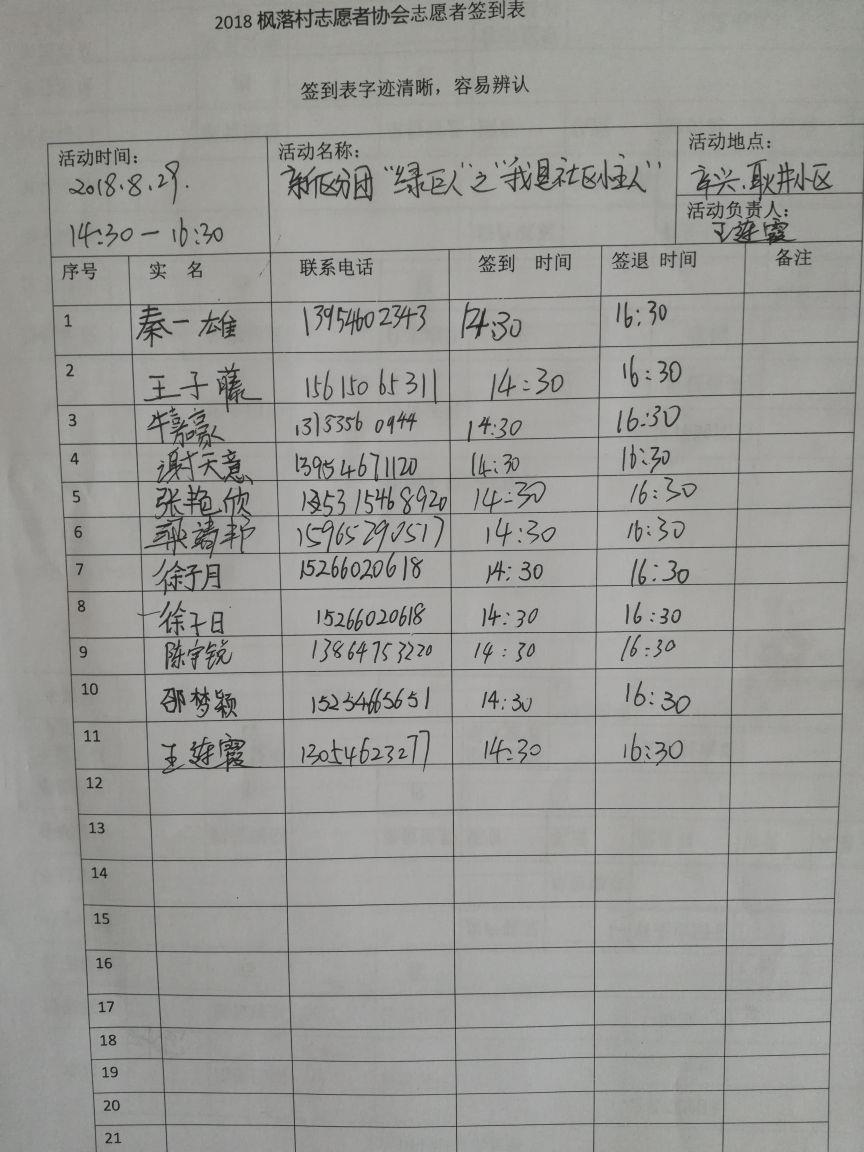 2018 枫落村志愿者协会志愿者签到表
签到表字迹清晰，容易辨认
活动时间： 活动名称： 活动地点：
2018.8.29. 新区分团“绿巨人”之“我是社区小主人” 车兴、耿井小区
14:30—16:30 活动负责人：
王连霞
序号 实 名 联系电话 签到 时间 签退 时间 备注
1 秦一雄 13954602343 14:30 16:30
2 王子藤 15615065311 14:30 16:30
3 牛嘉豪 14:30 16:30
4 谢天意 13954671120 14:30 16:30
5 张艳欣 14:30 16:30
6 靖邦 15965290517 14:30 16:30
7 徐子月 15266020618 14:30 16:30
8 徐子日 15266020618 14:30 16:30
9 陈宇锐 13864753220 14:30 16:30
10 邵梦颖 15254665651 14:30 16:30
11 王连霞 13054623277 14:30 16:30
12
13
14
15
16
17
18
19
20
21